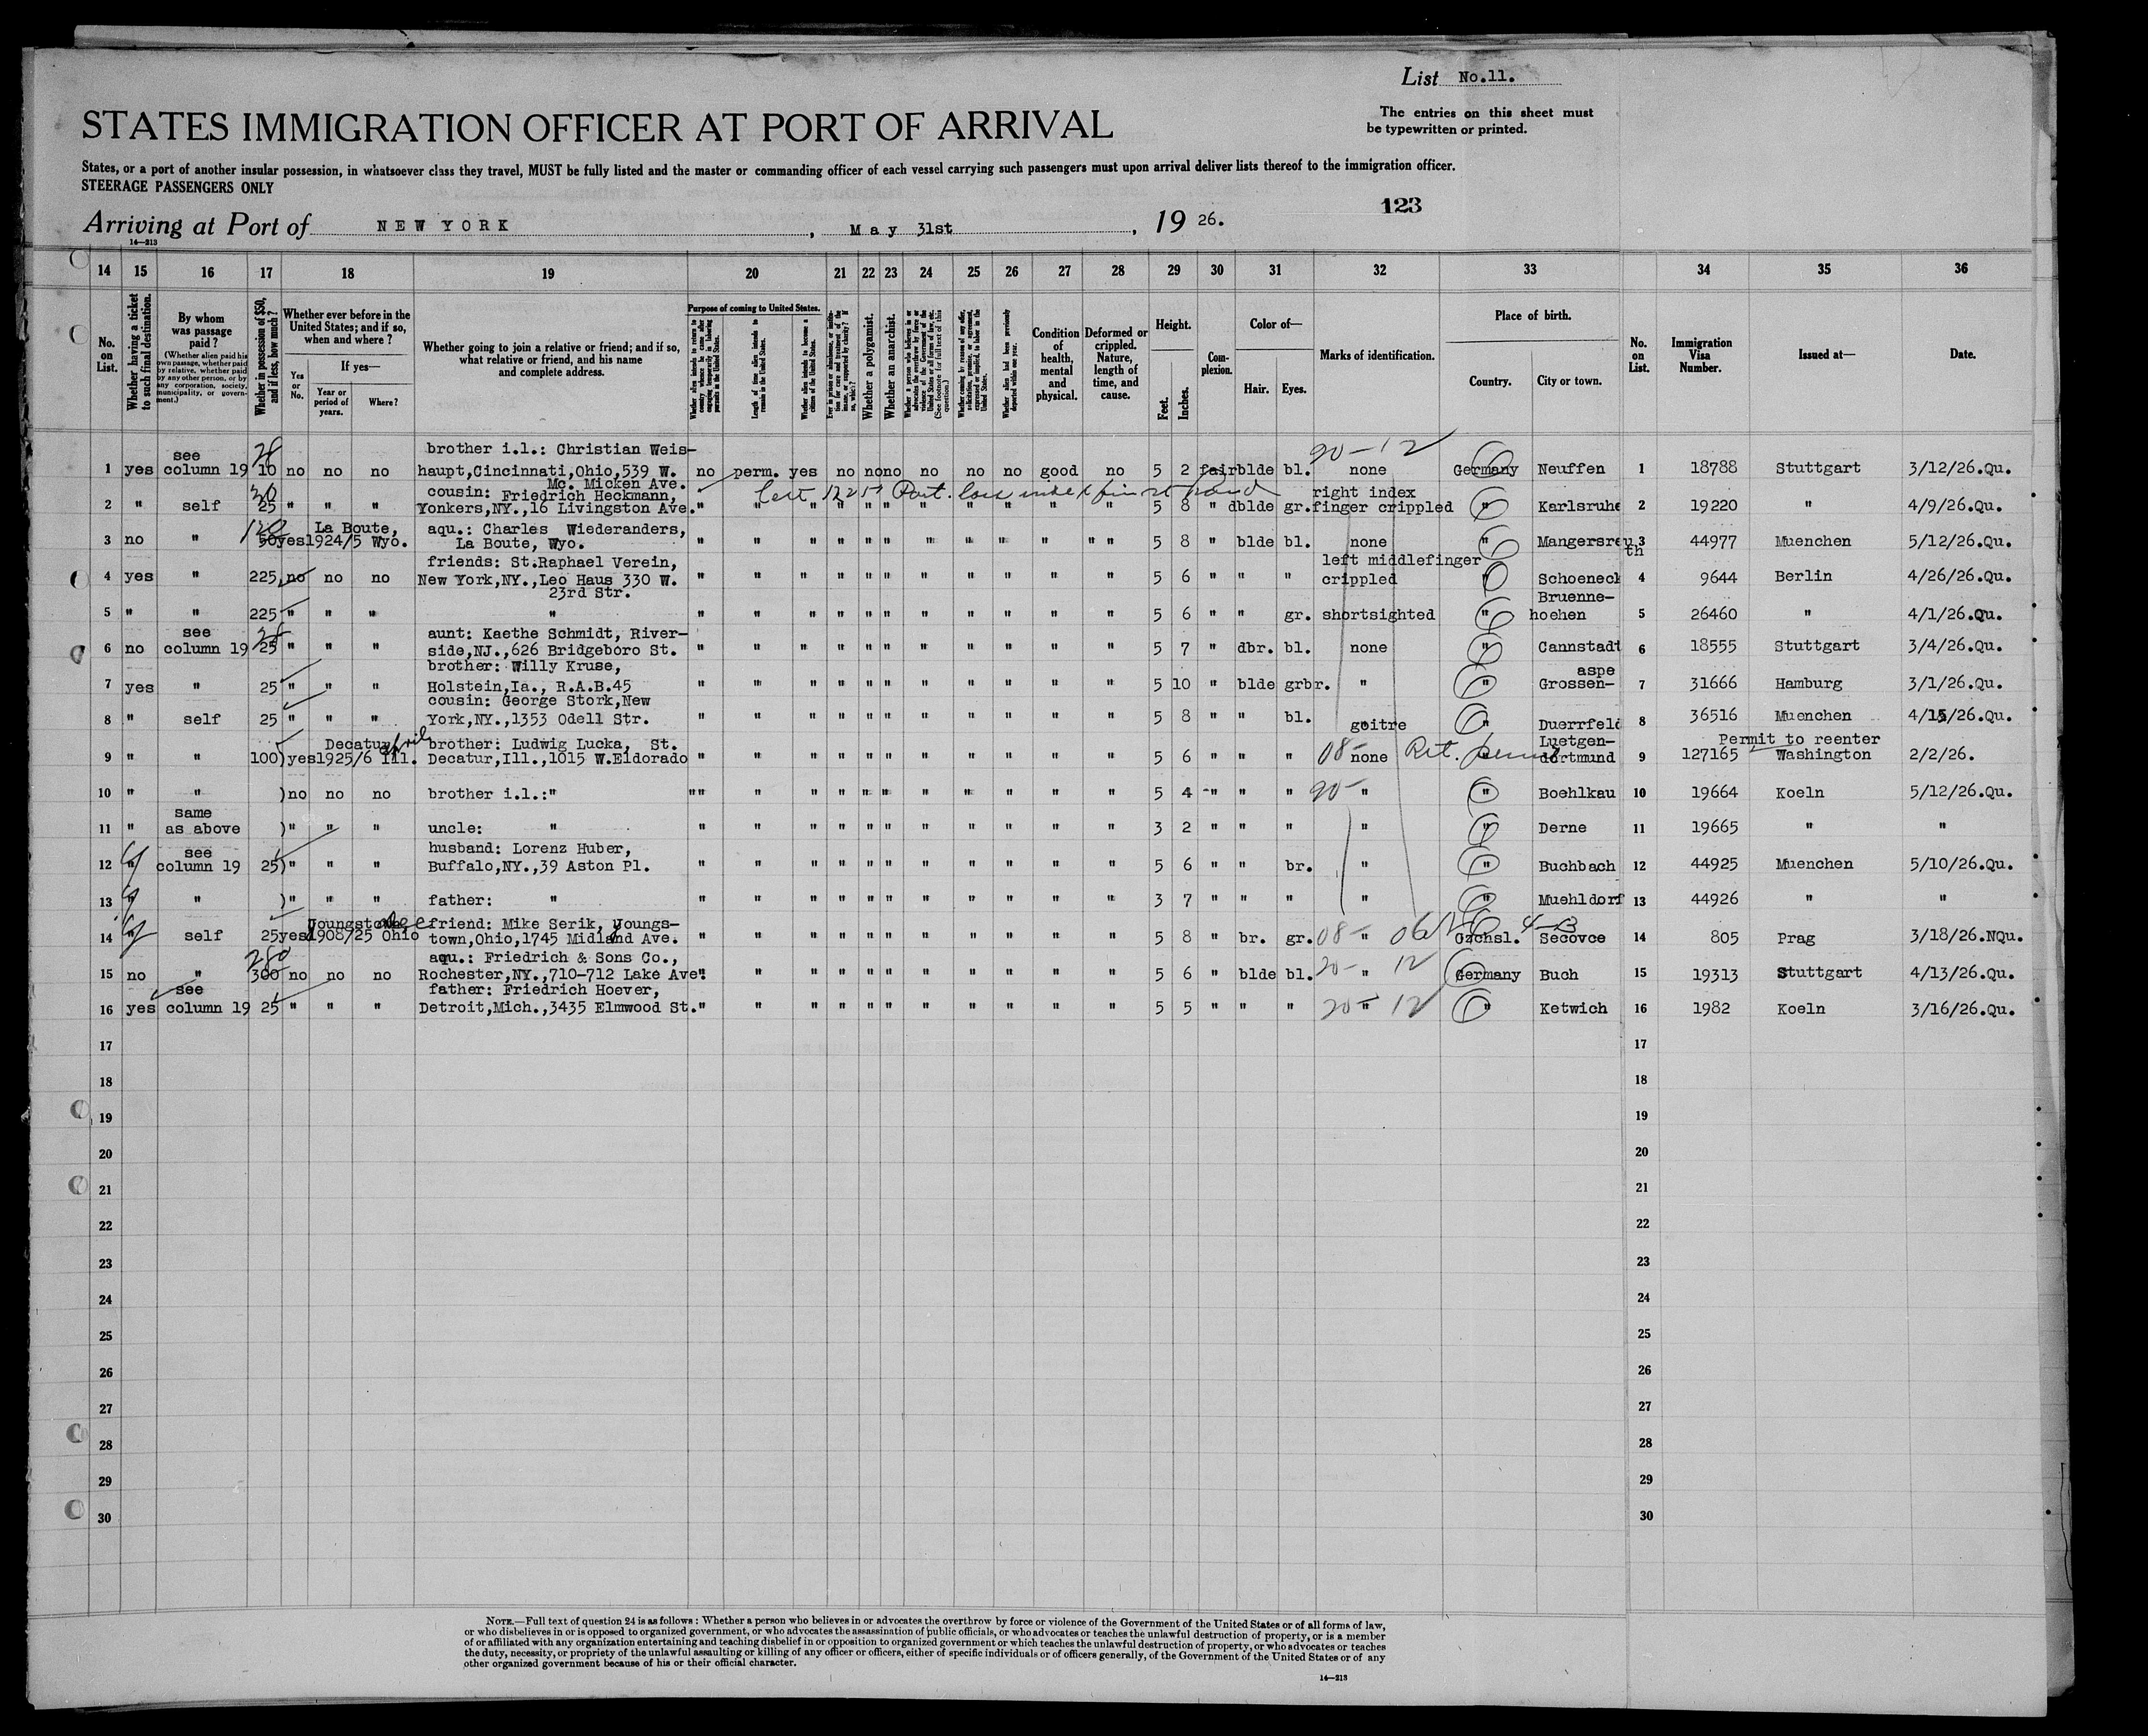 List No.11.
STATES IMMIGRATION OFFICER AT PORT OF ARRIVAL
The entries on this sheet must
be typewritten or printed.
States, or a port of another insular possession, in whatsoever class they travel, MUST be fully listed and the master or commanding officer of each vessel carrying such passengers must upon arrival deliver lists thereof to the immigration officer.
STEERAGE PASSENGERS ONLY
Arriving at Port of NEW YORK, May 31st, 1926.
123
14—213
14 15 16 17 18 19 20 21 22 23 24 25 26 27 28 29 30 31 32 33 34 35 36
No. on List.
Whether having a ticket to such final destination.
By whom was passage paid?
(Whether alien paid his own passage, whether paid by relative, whether paid by any other person, or by any corporation, society, municipality, or government.)
Whether in possession of $50, and if less, how much?
Whether ever before in the United States; and if so, when and where?
If yes—
Yes or No.
Year or period of years.
Where?
Whether going to join a relative or friend; and if so, what relative or friend, and his name and complete address.
Purpose of coming to United States.
Whether alien intends to return to country whence he came after engaging temporarily in laboring pursuits in the United States.
Length of time alien intends to remain in the United States.
Whether alien intends to become a citizen of the United States.
Whether a polygamist.
Whether an anarchist.
(See footnote for full text of this question.)
Whether alien had been previously deported within one year.
Condition of health, mental and physical.
Deformed or crippled. Nature, length of time, and cause.
Height.
Feet. Inches.
Complexion.
Color of—
Hair. Eyes.
Marks of identification.
Place of birth.
Country. City or town.
No. on List.
Immigration Visa Number.
Issued at—
Date.
90-12
1 yes see column 19 28 10 no no no brother i.l.: Christian Weis-
haupt,Cincinnati,Ohio,539 W. Mc. Micken Ave. no perm. yes no no no no no no good no 5 2 fair blde bl. none Germany Neuffen 1 18788 Stuttgart 3/12/26.Qu.
2 " self 30 25 " " " cousin: Friedrich Heckmann,
Yonkers,NY.,16 Livingston Ave. " " " " " " " " " " " 5 8 " dblde gr. right index finger crippled " Karlsruhe 2 19220 " 4/9/26.Qu.
3 no " 120 50 yes 1924/5 La Boute, Wyo. aqu.: Charles Wiederanders,
La Boute, Wyo. " " " " " " " " " " " 5 8 " blde bl. none " Mangersreuth 3 44977 Muenchen 5/12/26.Qu.
4 yes " 225 no no no friends: St.Raphael Verein,
New York,NY.,Leo Haus 330 W. 23rd Str. " " " " " " " " " " " 5 6 " " " left middlefinger crippled " Schoeneck 4 9644 Berlin 4/26/26.Qu.
5 " " 225 " " " " " " " " " " " " " " " " 5 6 " " gr. shortsighted " Bruenne-
hoehen 5 26460 " 4/1/26.Qu.
6 no see column 19 28 25 " " " aunt: Kaethe Schmidt, River-
side,NJ.,626 Bridgeboro St. " " " " " " " " " " " 5 7 " dbr. bl. none " Cannstadt 6 18555 Stuttgart 3/4/26.Qu.
7 yes " 25 " " " brother: Willy Kruse,
Holstein,Ia., R.A.B.45 " " " " " " " " " " " 5 10 " blde grbr. " " Grossen-
aspe 7 31666 Hamburg 3/1/26.Qu.
8 " self 25 " " " cousin: George Stork,New
York,NY.,1353 Odell Str. " " " " " " " " " " " 5 8 " " bl. goitre " Duerrfeld 8 36516 Muenchen 4/15/26.Qu.
9 " " 100) yes 1925/6 Decatur Ill. april brother: Ludwig Lucka, St.
Decatur,Ill.,1015 W.Eldorado " " " " " " " " " " " 5 6 " " " 08- none Ret. permit Luetgen-
dortmund 9 127165 Permit to reenter Washington 2/2/26.
10 " " ) no no no brother i.l.:" " " " " " " " " " " " " 5 4 " " " 90- " " Boehlkau 10 19664 Koeln 5/12/26.Qu.
11 " same as above )" " " uncle: " " " " " " " " " " " " 3 2 " " " " " Derne 11 19665 " "
12 " see column 19 25)" " " husband: Lorenz Huber,
Buffalo,NY.,39 Aston Pl. " " " " " " " " " " " 5 6 " " br. " " Buchbach 12 44925 Muenchen 5/10/26.Qu.
13 " " )" " " father: " " " " " " " " " " " " 3 7 " " " " " Muehldorf 13 44926 " "
14 " self 25 yes 1908/25 Youngstown Ohio friend: Mike Serik, Youngs-
town,Ohio,1745 Midland Ave. " " " " " " " " " " " 5 8 " br. gr. 08- " Czchsl. Secovce 14 805 Prag 3/18/26.NQu.
15 no " 280 300 no no no aqu.: Friedrich & Sons Co.,
Rochester,NY.,710-712 Lake Ave. " " " " " " " " " " " 5 6 " blde bl. 20- " 12 Germany Buch 15 19313 Stuttgart 4/13/26.Qu.
16 yes see column 19 25 " " " father: Friedrich Hoever,
Detroit,Mich.,3435 Elmwood St. " " " " " " " " " " " 5 5 " " " 20- " 12 " Ketwich 16 1982 Koeln 3/16/26.Qu.
17 17
18 18
19 19
20 20
21 21
22 22
23 23
24 24
25 25
26 26
27 27
28 28
29 29
30 30
NOTE.—Full text of question 24 is as follows: Whether a person who believes in or advocates the overthrow by force or violence of the Government of the United States or of all forms of law,
or who disbelieves in or is opposed to organized government, or who advocates the assassination of public officials, or who advocates or teaches the unlawful destruction of property, or is a member
of or affiliated with any organization entertaining and teaching disbelief in or opposition to organized government or which teaches the unlawful destruction of property, or who advocates or teaches
the duty, necessity, or propriety of the unlawful assaulting or killing of any officer or officers, either of specific individuals or of officers generally, of the Government of the United States or of any
other organized government because of his or their official character.
14—213